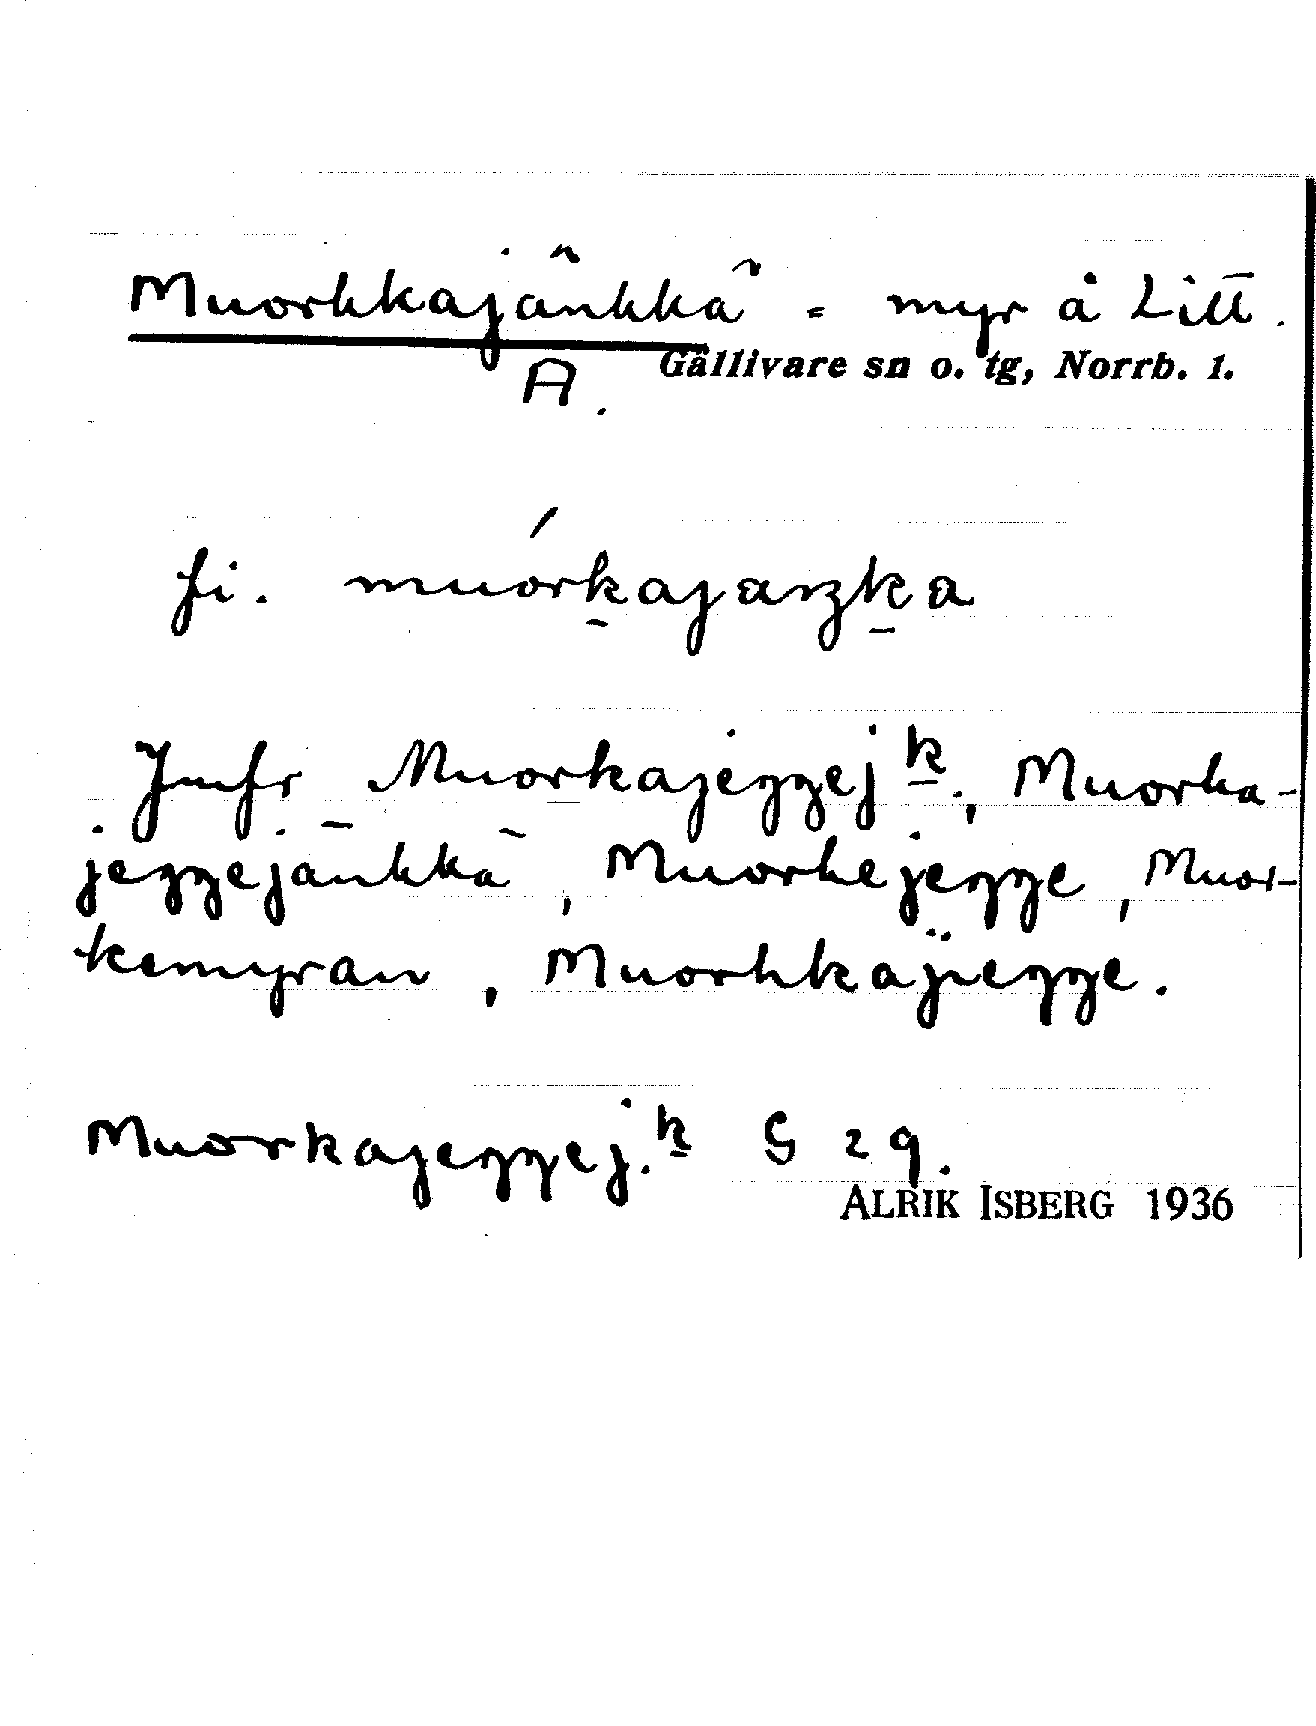 Muorkkajänkkä = myr å Litt.
A.
Gällivare sn o. tg, Norrb. l.
fi. muórkajaŋka
Jmfr Muorkajeggej k., Muorka-
jeggejänkkä, Muorkejegge, Muor-
kemyran, Muorkkajiegge.
Muorkajeggej. k G 29.
ALRIK ISBERG 1936